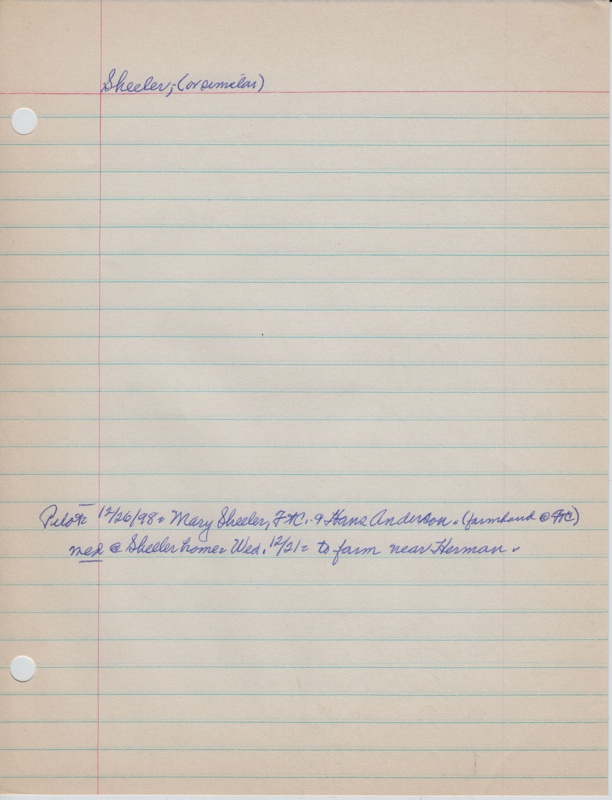 Sheeler, - (or similar)
Pilot 12/26/98 = Mary Sheeler, Ft C. & Hans Anderson. (farmhand @ Ft C)
med @ Sheeler home = Wed. 12/21 = to farm near Herman.